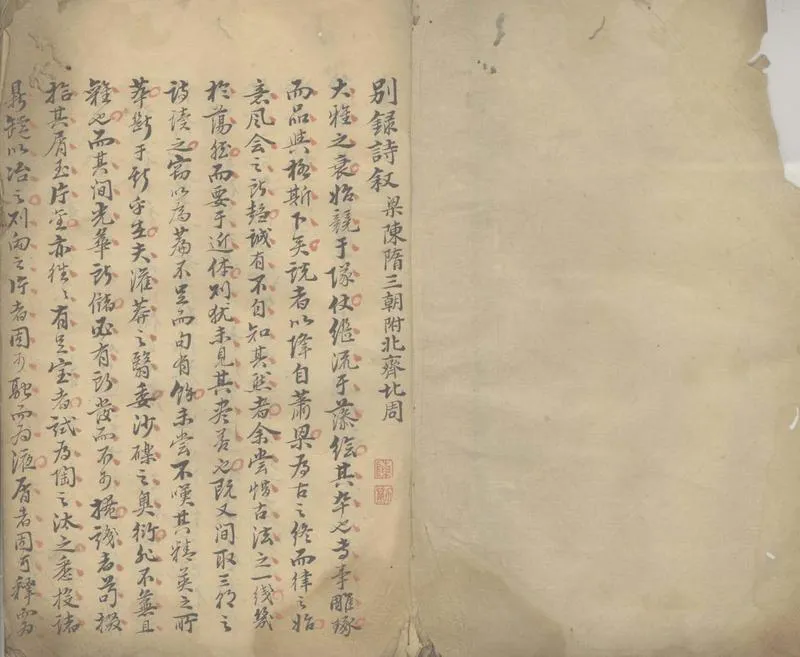 別錄詩叙 梁陳隋三朝附北齊北周
大雅之衰始競于隊仗繼流于藻繪其卒也專事雕琢
而品與極斯下矣説者以降自蕭梁為古之終而律之始
意風會之所趨誠有不自知其然者余嘗惜古法之一綫幾
於蕩強而要于近体則猶未見其盡善也既又間取三朝之
詩讀之窃以為篇不足而句有餘未嘗不嘆其精英之所
萃斷于斯乎生夫灌莽之翳委沙礫之奧衍孰不蕪且
雜也而其間光華所儲必有所發而不可掩識者苟掇
拾其屑玉片金亦往々有足宝者試為陶之汰之悉投諸
鼎以冶之則向之片者固可融而為液屑者固可釋而為